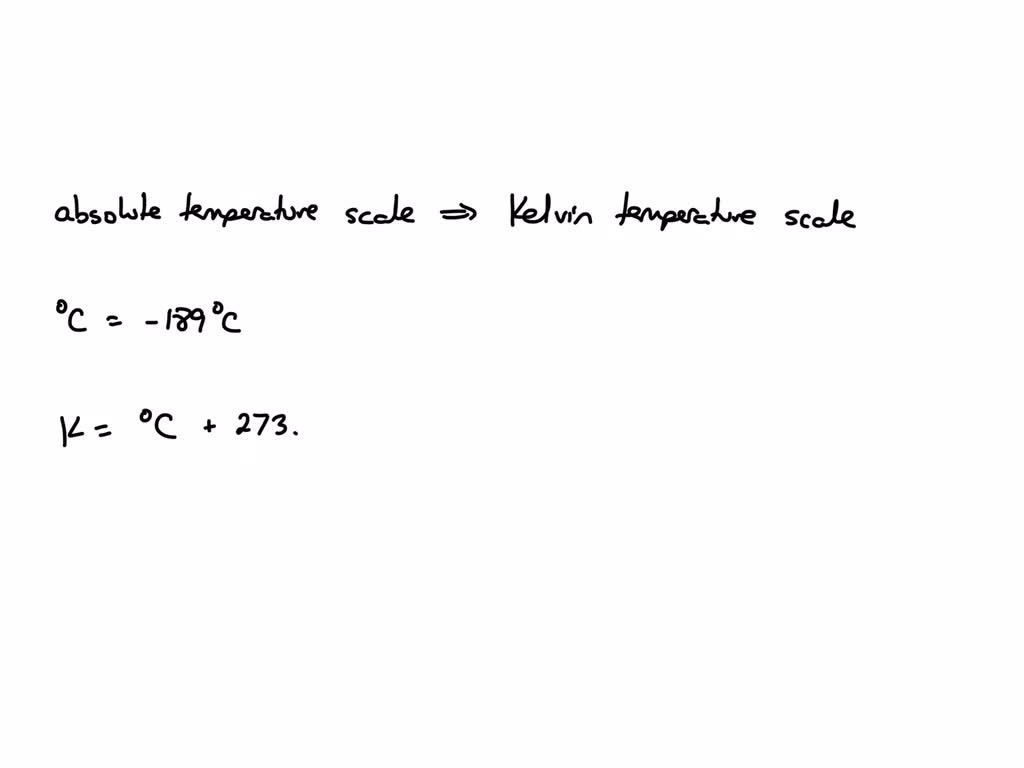 absolute temperature scale ⇒ Kelvin temperature scale
°C = -189°C
K = °C + 273.